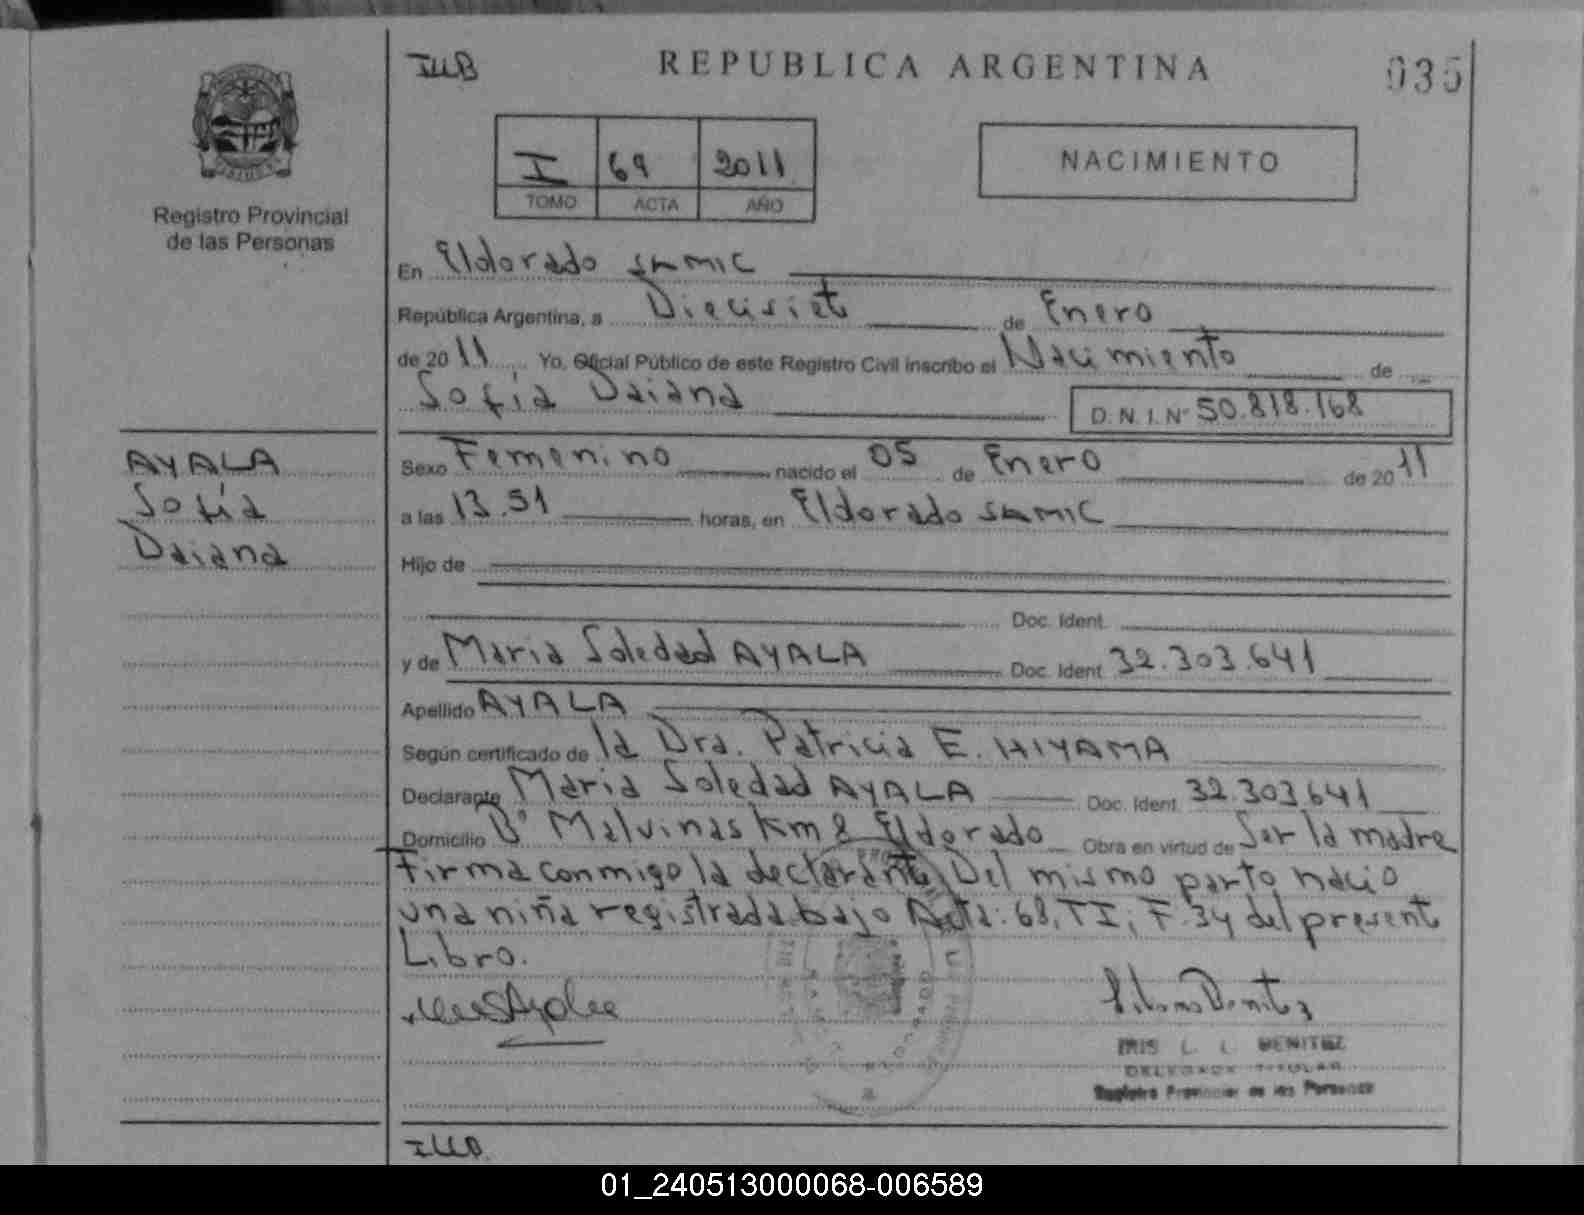 ILLB
REPUBLICA ARGENTINA
035
I 69 2011
TOMO ACTA AÑO
NACIMIENTO
Registro Provincial
de las Personas
En Eldorado SAMIC
República Argentina, a Diecisiete de Enero
de 2011 Yo, Oficial Público de este Registro Civil inscribo el Nacimiento de
Sofía Daiana D. N. I. Nº 50.818.168
AYALA
Sofía
Daiana
Sexo Femenino nacido el 05 de Enero de 2011
a las 13.51 horas, en Eldorado SAMIC
Hijo de
Doc. Ident.
y de Maria Soledad AYALA Doc. Ident. 32.303.641
Apellido AYALA
Según certificado de la Dra. Patricia E. HIYAMA
Declarante Maria Soledad AYALA Doc. Ident. 32.303.641
Domicilio Bº Malvinas Km 8 Eldorado Obra en virtud de Ser la madre
Firma conmigo la declarante. Del mismo parto nacio
una niña registrada bajo Acta: 68, TI, F.34 del present
Libro.
IRIS L. L. BENITEZ
DELEGADA TITULAR
Registro Provincial de las Personas
ELDORADO
ILLB
01_240513000068-006589